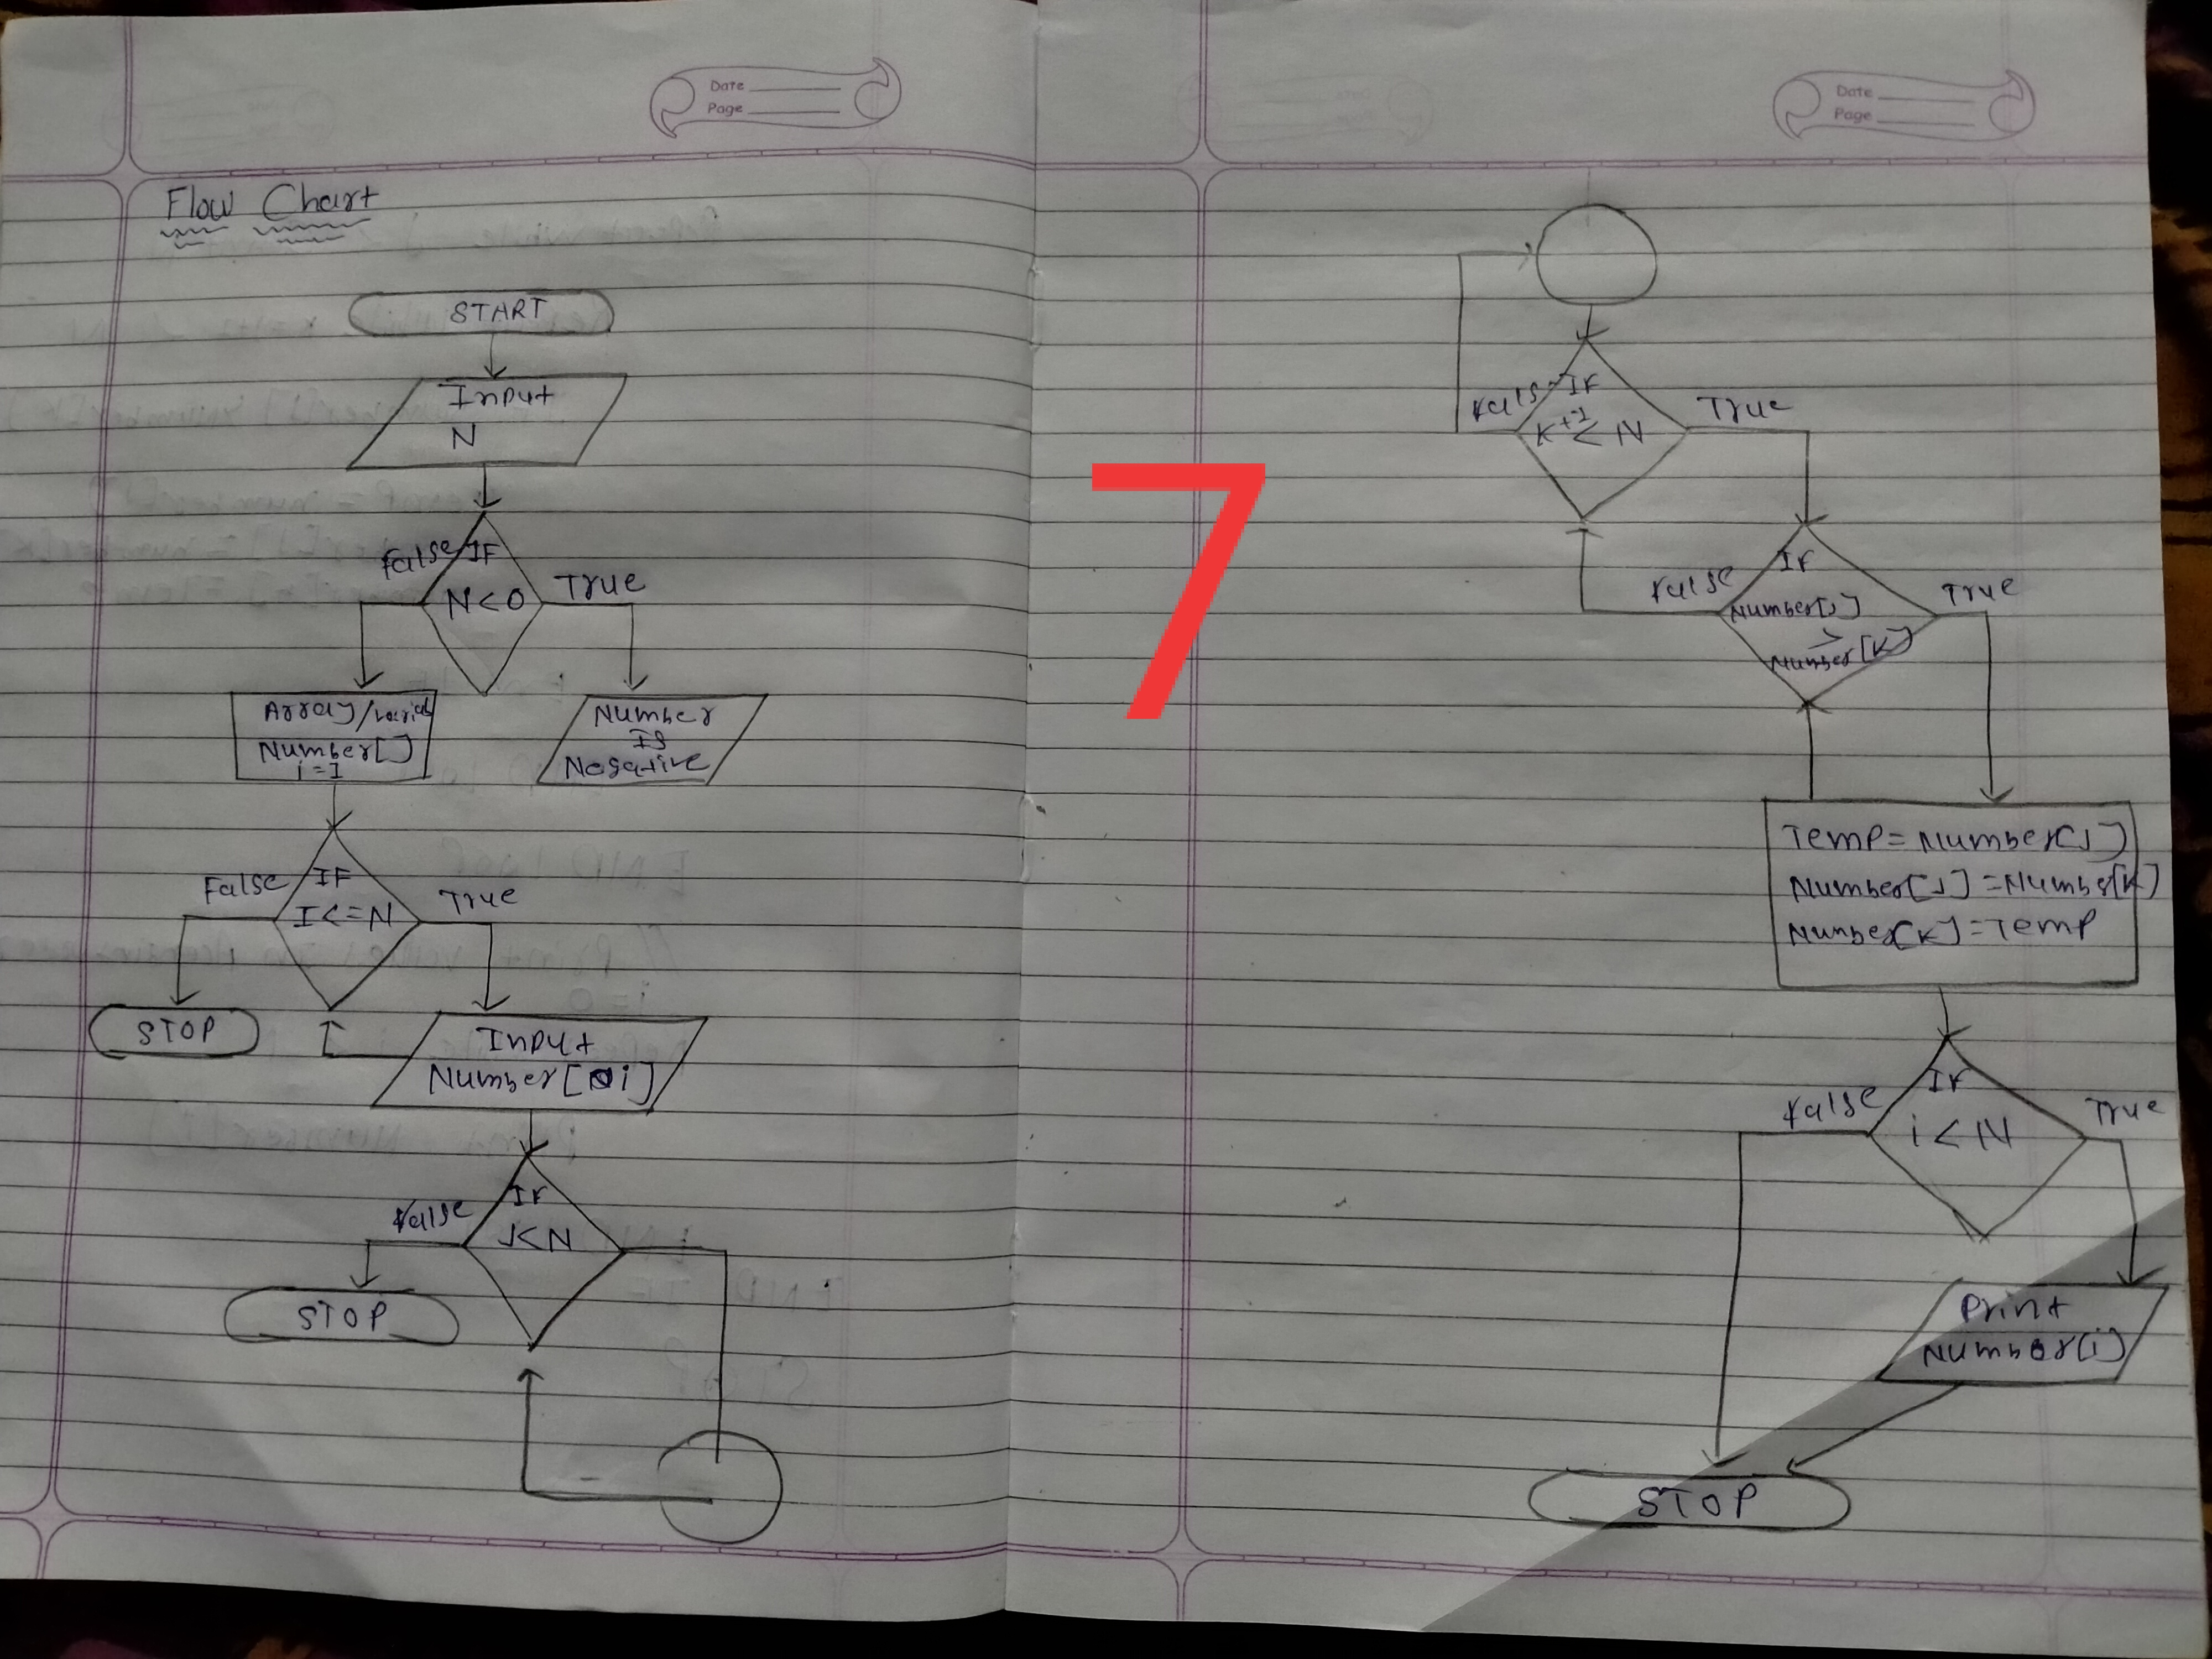 Date
Page
Flow Chart
START
Input
N
False
IF
N<0
True
Array/
Number[]
i=1
Number
Is
Negative
False
IF
I<=N
True
STOP
Input
Number[i]
False
IF
J<N
STOP
7
Date
Page
False
IF
K+1
< N
True
False
IF
Number[J]
>
Number[K]
True
Temp=Number[J]
Number[J]=Numbe[K]
Number[K]=Temp
False
IF
i<N
True
Print
Number(i)
STOP